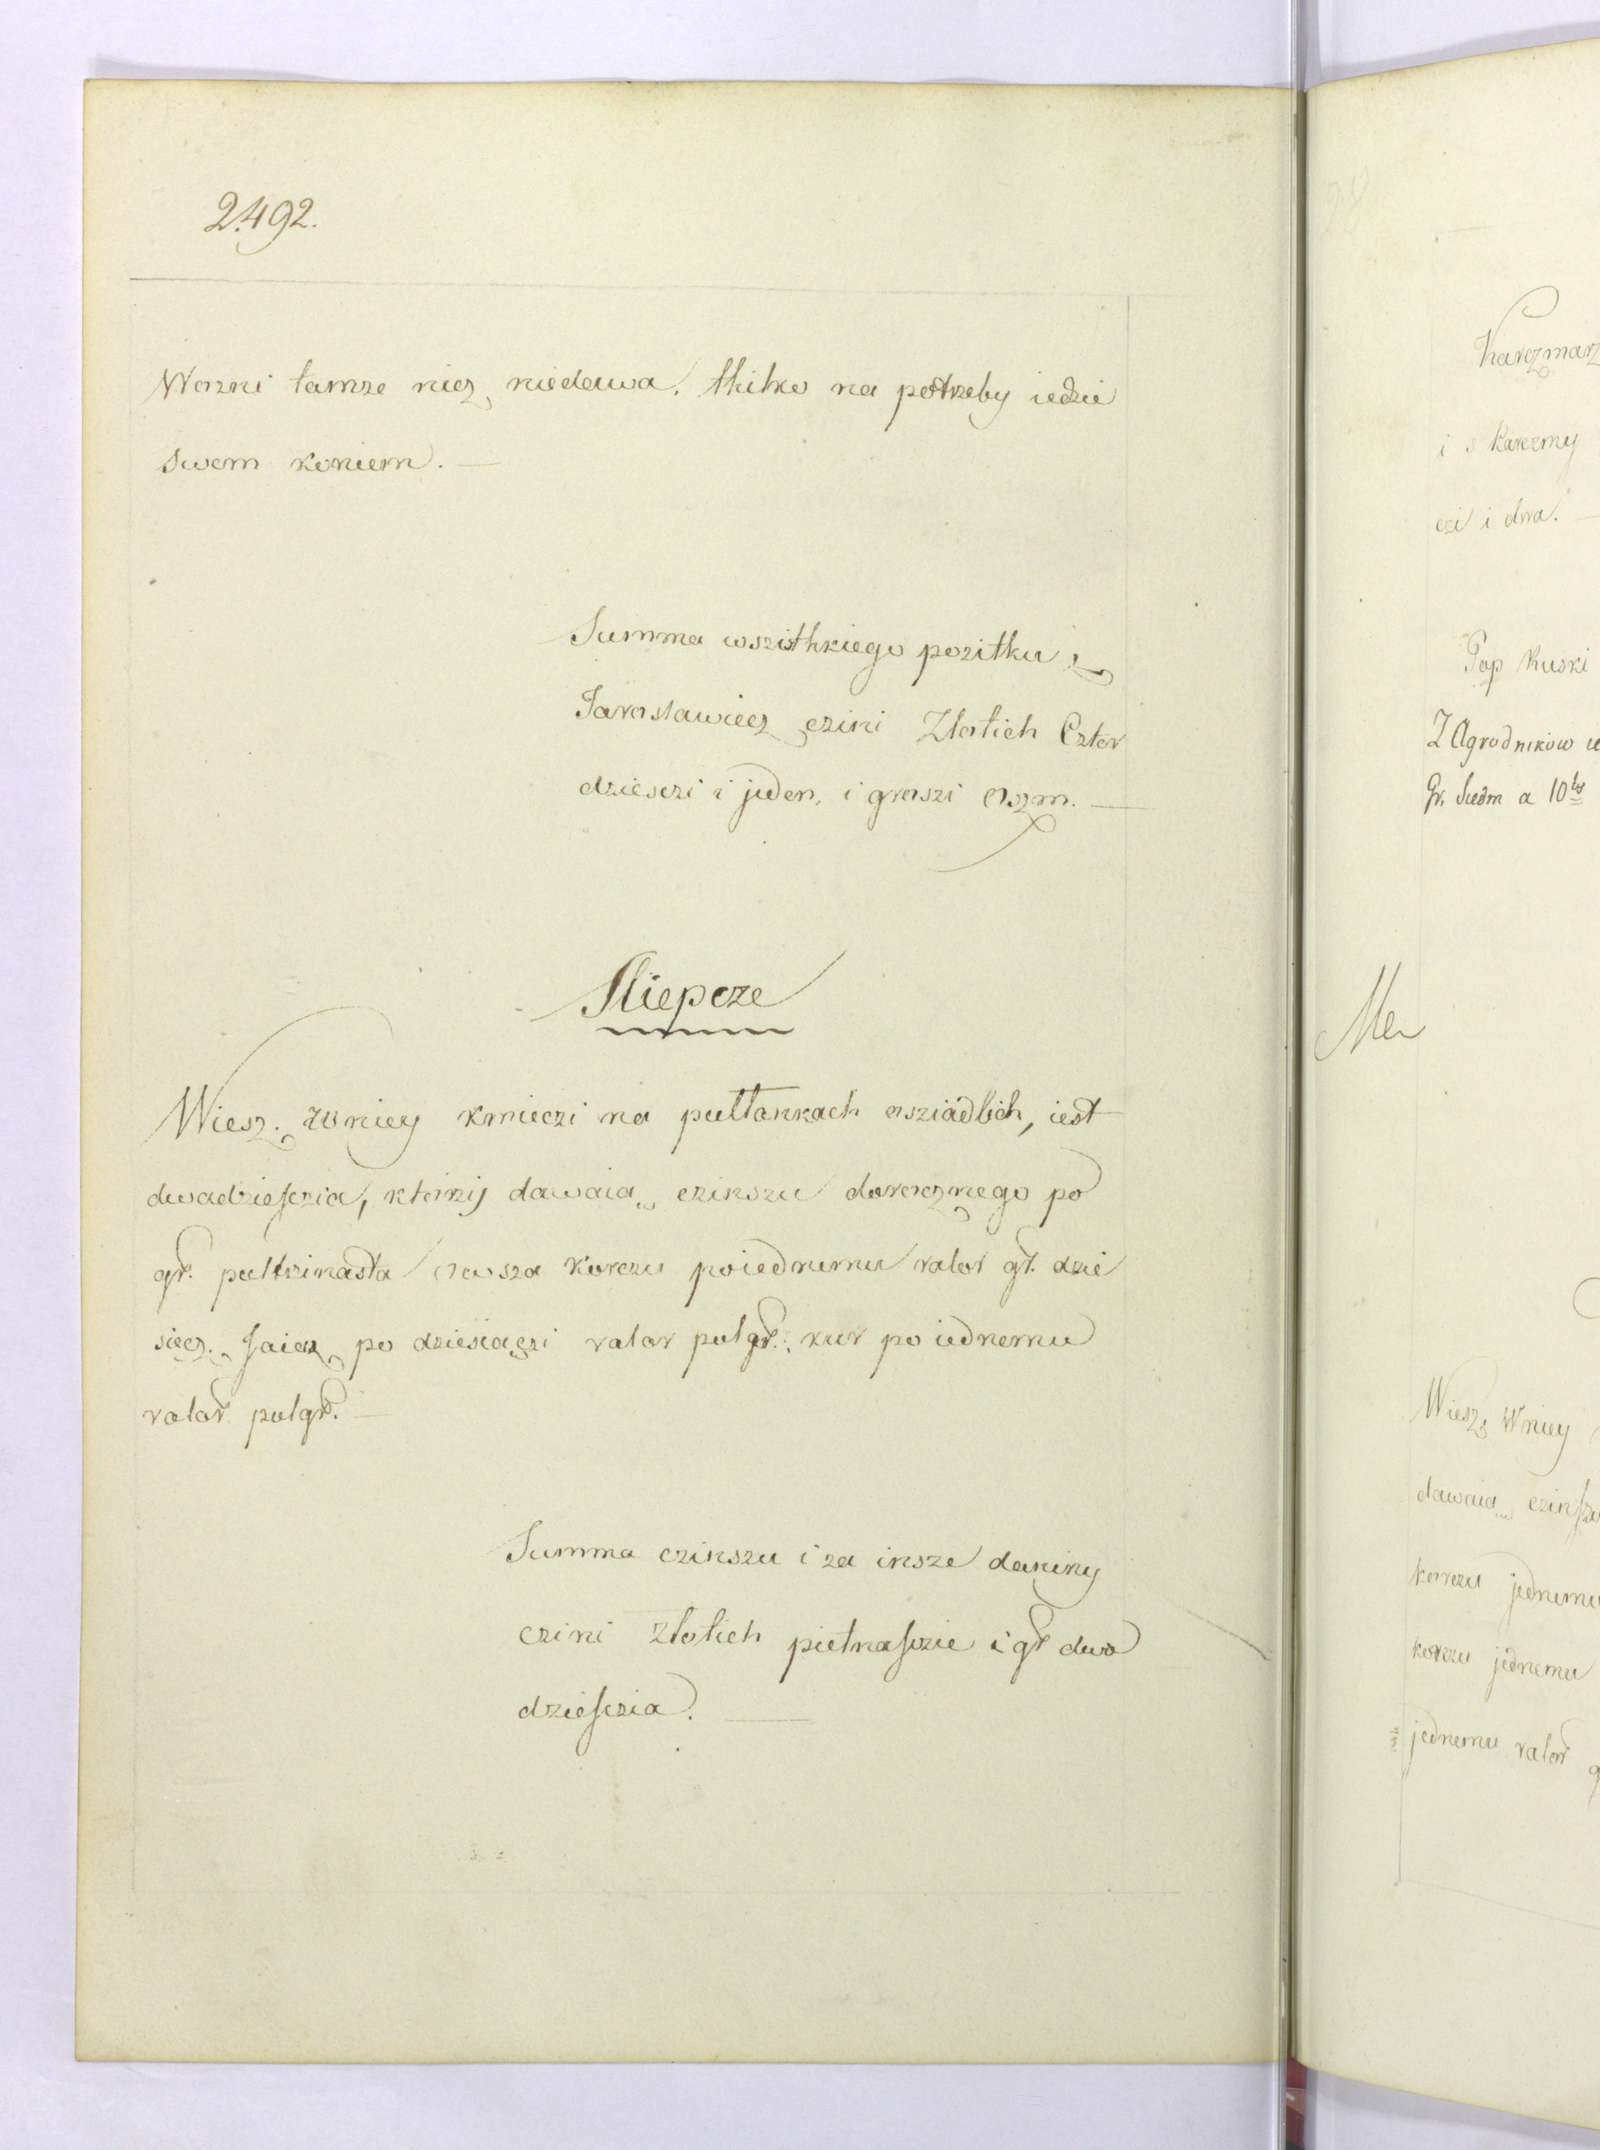 2492.
Wozni tamze nicz niedawa, thilko na potrzeby iedzie
swem koniem. —
Summa wszisthkiego pozitku z
Jaroslawiecz czini Zlotich Czter
dziesczi i jeden, i groszi Oszm. —
Sliepcze
Wiesz. wniey kmieczi na pullankach osziadlich, iest
dwadziesczia, ktorzij dawaia czinszu dorocznego po
gr. pultrzinasta Owsza korczu poiednemu valor gr. dzie
siecz. Jaiecz po dziesiaczi valor pulgr. kur po iednemu
valor pulgr. —
Summa czinszu i za insze daniny
czini Zlotich pietnasczie i gr dwa
dziesczia. —
Karczmarz
i s karczmy
czi i dwa. —
Pop Ruski
Z Agrodnikow
Gr. Siedm a 10
Me
Wiesz, Wniey
dawaia czinszu
korczu jednemu
korczu jednemu
jednemu valor